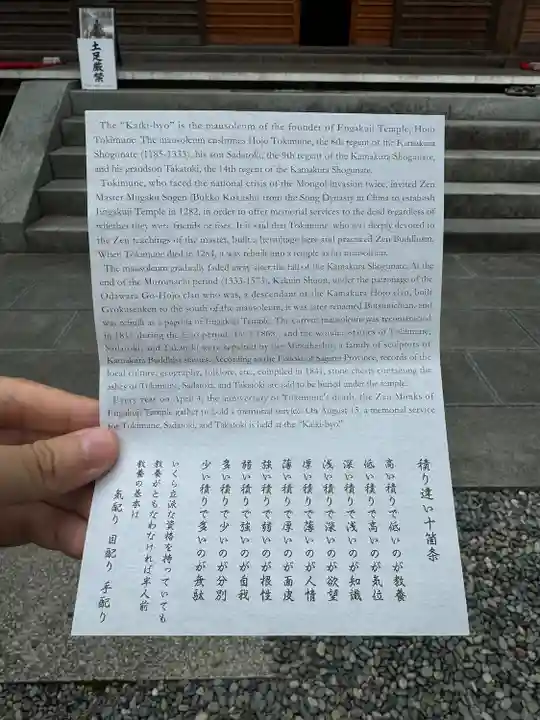 土足厳禁
The "Kaiki-byo" is the mausoleum of the founder of Engakuji Temple, Hojo
Tokimune. The mausoleum enshrines Hojo Tokimune, the 8th regent of the Kamakura
Shogunate (1185-1333), his son Sadatoki, the 9th regent of the Kamakura Shogunate,
and his grandson Takatoki, the 14th regent of the Kamakura Shogunate.
Tokimune, who faced the national crisis of the Mongol invasion twice, invited Zen
Master Mugaku Sogen (Bukko Kokushi) from the Song Dynasty in China to establish
Engakuji Temple in 1282, in order to offer memorial services to the dead regardless of
whether they were friends or foes. It is said that Tokimune who was deeply devoted to
the Zen teachings of the master, built a hermitage here and practiced Zen Buddhism.
When Tokimune died in 1284, it was rebuilt into a temple as his mausoleum.
The mausoleum gradually faded away after the fall of the Kamakura Shogunate. At the
end of the Muromachi period (1333-1573), Kakuin Shuon, under the patronage of the
Odawara Go-Hojo clan who was, a descendant of the Kamakura Hojo clan, built
to the south of the mausoleum, it was later renamed Butsunichian, and
was rebuilt as a pagoda of Engakuji Temple. The current mausoleum was reconstructed
in during the Edo period and the wooden statues of Tokimune,
Sadatoki, and Takatoki were repaired by the Mitsuhashi, a family of sculptors of
Kamakura Buddhist statues. According to the of Sagami Province, records of the
local culture, geography, folklore, etc., compiled in 1841, stone chests containing the
ashes of Tokimune, Sadatoki, and Takatoki are said to be buried under the temple.
Every year on April 4, the anniversary of Tokimune's death, the Zen Monks of
Engakuji Temple gather to hold a memorial service. On August 15, a memorial service
for Tokimune, Sadatoki, and Takatoki is held at the "Kaiki-byo"
積り違い十箇条
高い積りで低いのが教養
低い積りで高いのが気位
深い積りで浅いのが知識
浅い積りで深いのが欲望
厚い積りで薄いのが人情
薄い積りで厚いのが面皮
強い積りで弱いのが根性
弱い積りで強いのが自我
多い積りで少いのが分別
少い積りで多いのが無駄
いくら立派な資格を持っていても
教養がともなわなければ半人前
教養の基本は
気配り 目配り 手配り